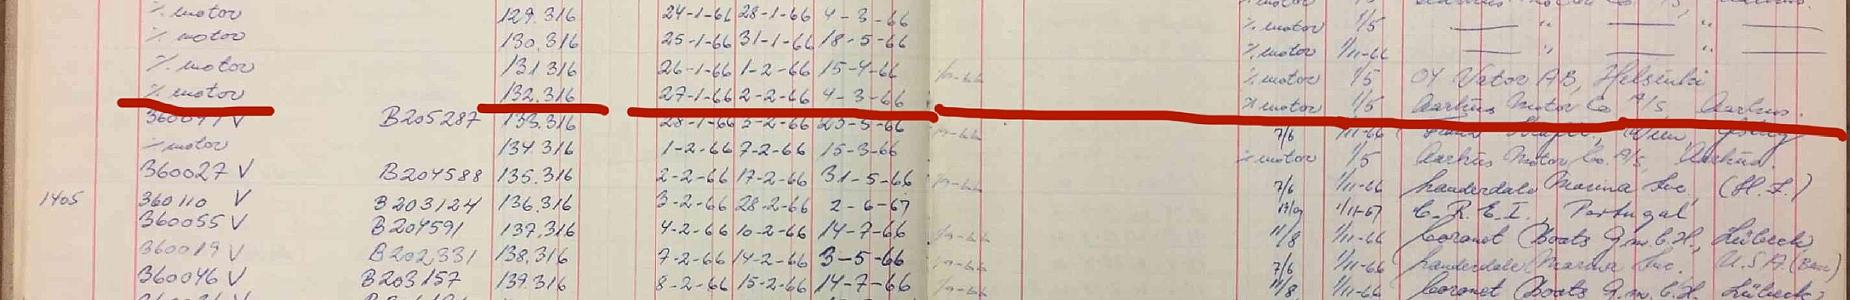 % motor 129.316 24-1-66 28-1-66 4-3-66 % motor 1/5 Aarhus Motor Co
% motor 130.316 25-1-66 31-1-66 18-5-66 % motor 1/5 — " — " —
% motor 131.316 26-1-66 1-2-66 15-4-66 % motor 1/5 OY Vator AB, Helsinki
% motor 132.316 27-1-66 2-2-66 4-3-66 % motor 1/5 Aarhus Motor Co A/S, Aarhus.
V B205287 133.316 28-1-66 3-2-66 25-5-66 7/6 1/11-66 Wien
% motor 134.316 1-2-66 7-2-66 15-3-66 % motor 1/5 Aarhus Motor Co. A/S, Aarhus
360027 V B204588 135.316 2-2-66 17-2-66 31-5-66 7/6 1/11-66 Lauderdale Marina Inc, (H.F.)
1405 360110 V B203124 136.316 3-2-66 28-2-66 2-6-67 1/11-67 C.R.E.I., Portugal
360055 V B204591 137.316 4-2-66 10-2-66 14-7-66 11/8 1/11-66 Coronet Boats G.m.b.H., Lübeck
360019 V B202331 138.316 7-2-66 14-2-66 3-5-66 7/6 1/11-66 Lauderdale Marina Inc. U.S.A.
360046 V B203157 139.316 8-2-66 15-2-66 14-7-66 11/8 1/11-66 Coronet Boats G.m.b.H. Lübeck